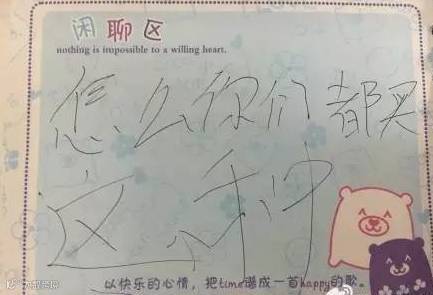 闲聊区
nothing is impossible to a willing heart.
怎么你们都买
这种
以快乐的心情，把time谱成一首happy的歌。